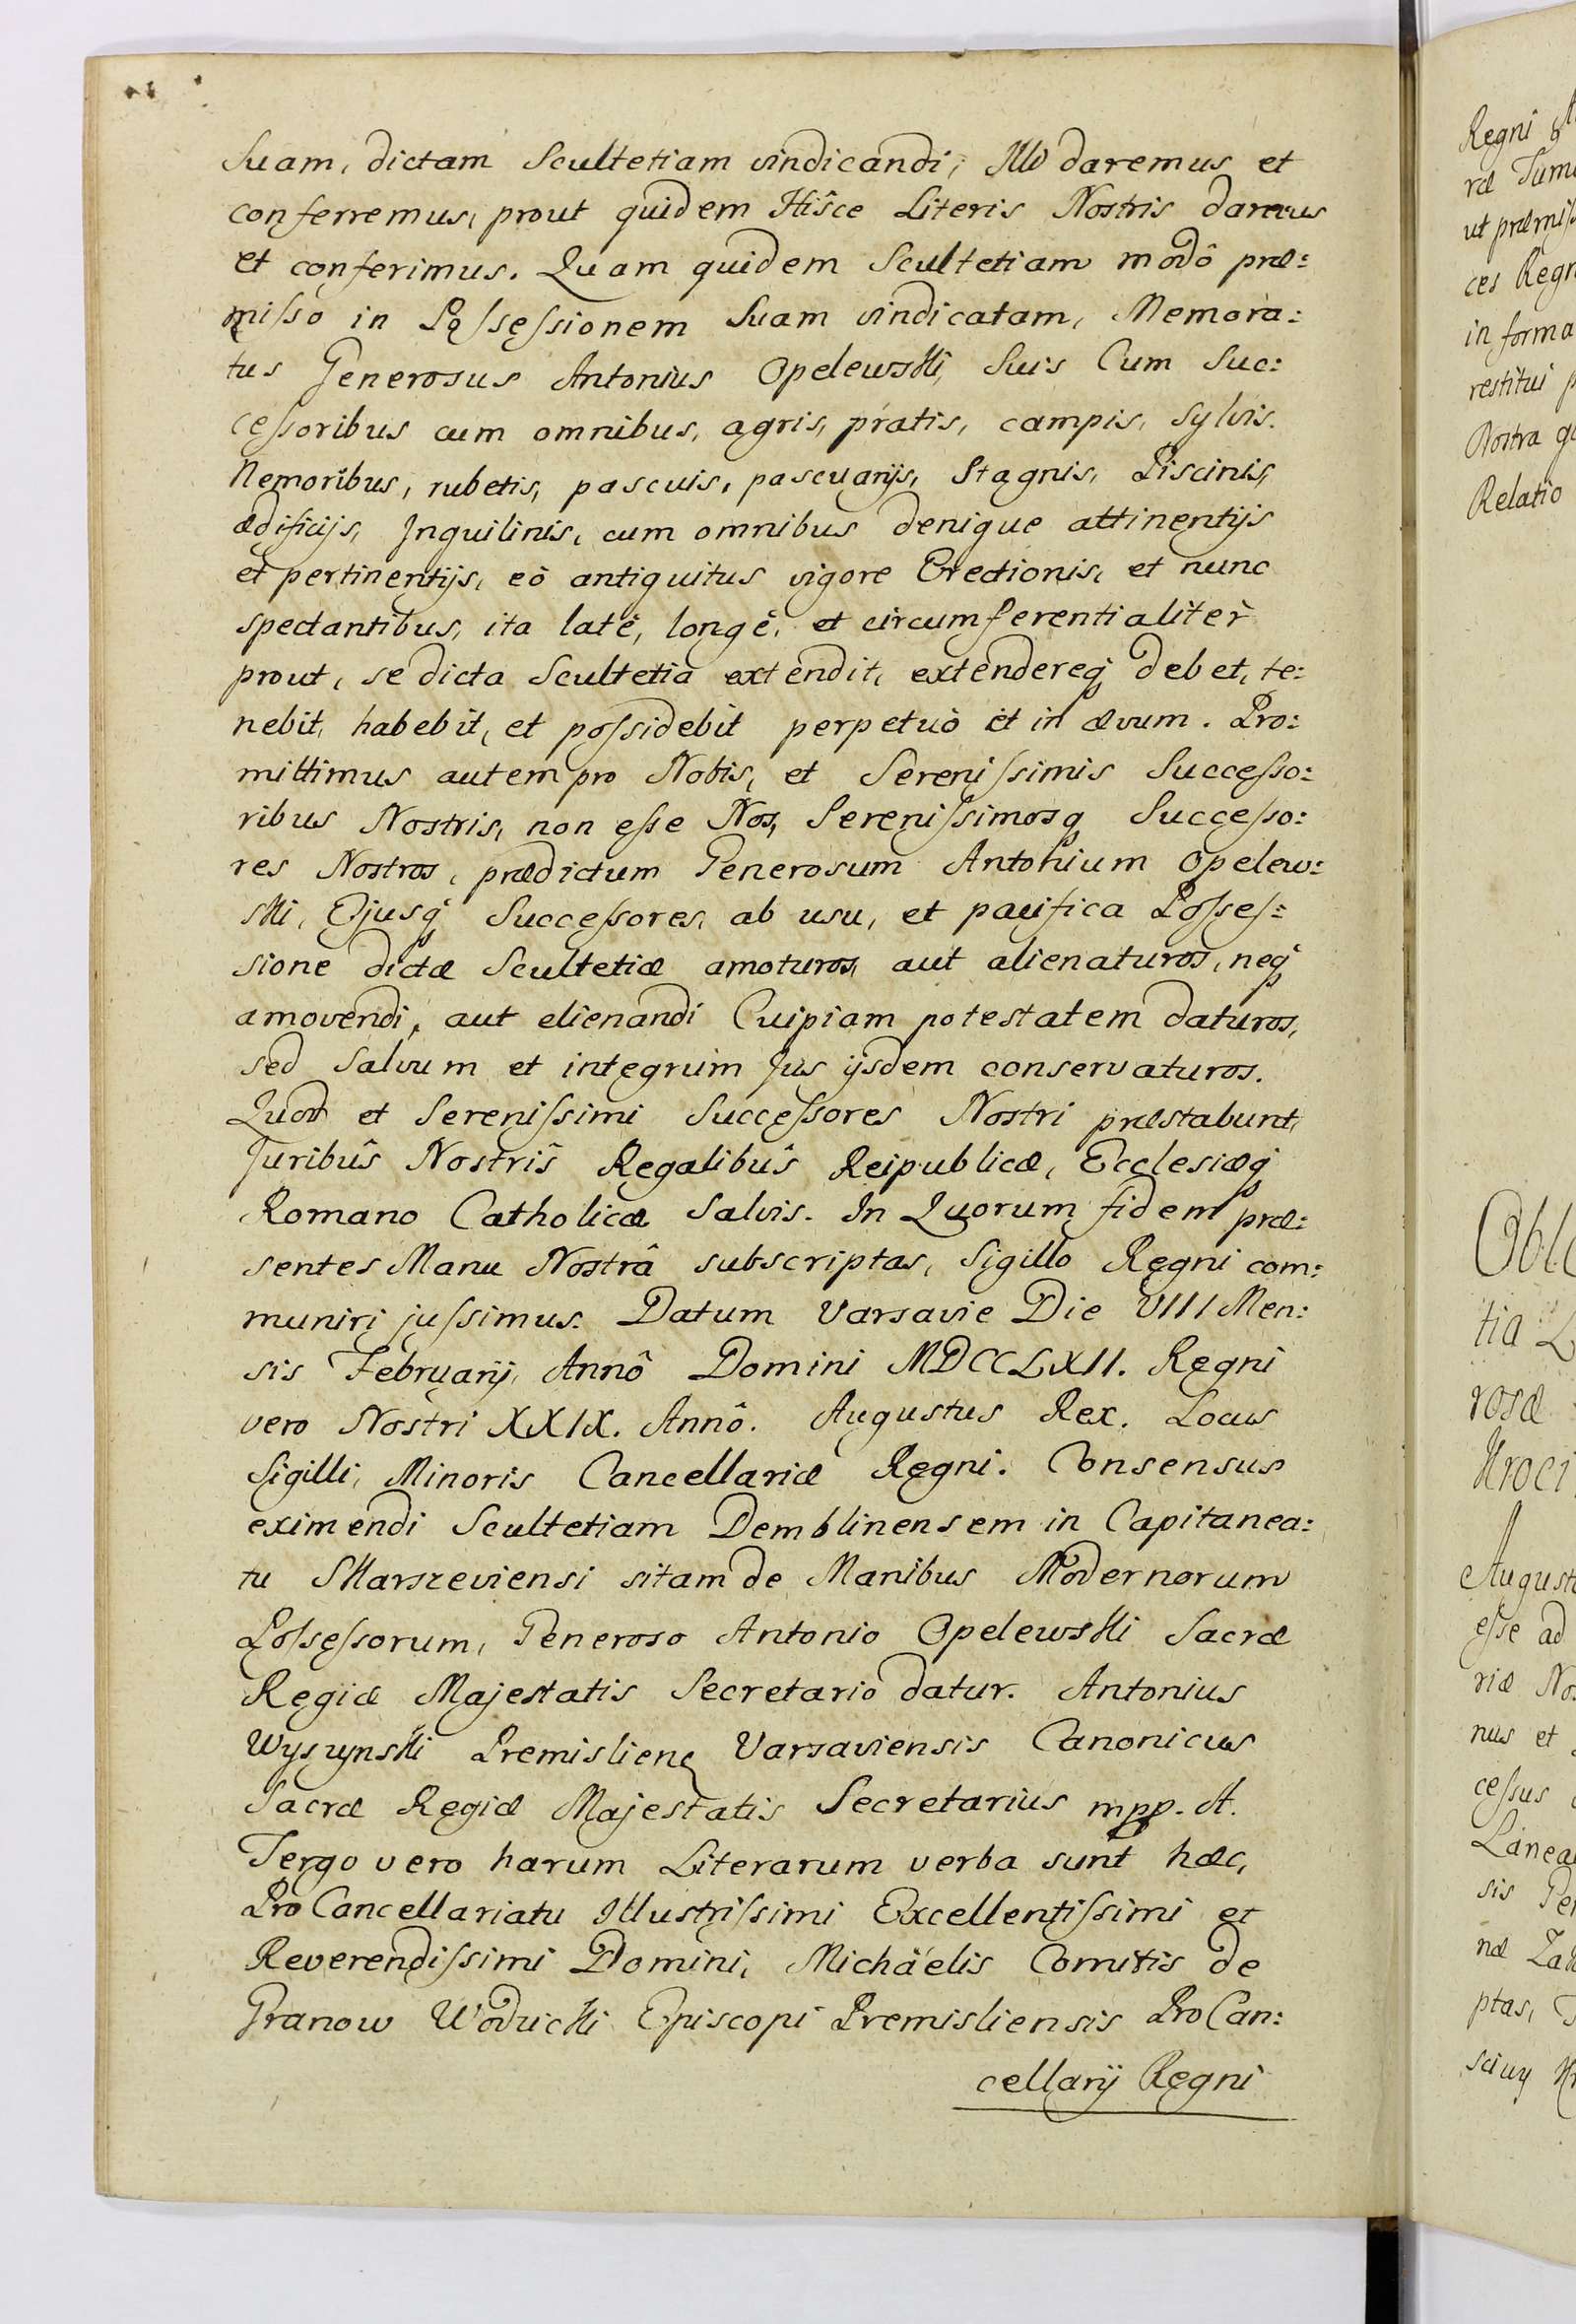 Suam, dictam Scultetiam vindicandi, Illi daremus et
conferremus, prout quidem Hisce Literis Nostris damus
et conferimus. Quam quidem Scultetiam modô præ:
misso in Possessionem Suam vindicatam, Memora:
tus Generosus Antonius Opelewski, Suis Cum Suc:
cessoribus cum omnibus, agris, pratis, campis, sylvis.
Nemoribus, rubetis, pascuis, pascuarijs, Stagnis, Piscinis,
ædificijs, Inquilinis, cum omnibus denique attinentijs
et pertinentijs, eò antiquitus vigore Erectionis, et nunc
spectantibus, ita latè, longè, et circumferentialitèr
prout, se dicta Scultetia extendit, extendereq debet, te:
nebit, habebit, et possidebit perpetuò et in ævum. Pro:
mittimus autem pro Nobis, et Serenissimis Successo:
ribus Nostris, non esse Nos, Serenissimosq Successo:
res Nostros, prædictum Generosum Antonium Opelew:
ski, Ejusq Successores, ab usu, et pacifica Posses:
sione dictæ Scultetiæ amoturos, aut alienaturos, neq
amovendi, aut elienandi Cuipiam potestatem daturos,
sed Salvum et integrum Jus ijsdem conservaturos.
Quod et Serenissimi Successores Nostri præstabunt,
Juribûs Nostrîs Regalibûs Reipublicæ, Ecclesiæq
Romano Catholicæ Salvis. In Quorum fidem præ:
sentes Manu Nostrâ subscriptas, Sigillo Regni com:
muniri jussimus. Datum Varsavie Die VIII Men:
sis Februarij, Annô Domini MDCCLXII. Regni
vero Nostri XXIX. Annô. Augustus Rex. Locus
Sigilli, Minoris Cancellariæ Regni. Consensus
eximendi Scultetiam Demblinensem in Capitanea:
tu Skarszeviensi sitam de Manibus Modernorum
Possessorum, Generoso Antonio Opelewski Sacræ
Regiæ Majestatis Secretario datur. Antonius
Varsaviensis Canonicus
Sacræ Regiæ Majestatis Secretarius mpp. A.
Tergo vero harum Literarum verba sunt hæc,
Pro Cancellariatu Illustrissimi Excellentissimi et
Reverendissimi Domini, Michäelis Comitis de
Granow Wodzicki Episcopi Premisliensis Pro Can:
cellarij Regni
Regni
ræ
ut
ces
in forma
restitui
Nostra
Relatio
tia
rosæ
esse ad
riæ
nus et
cessus
sis
næ
ptas,